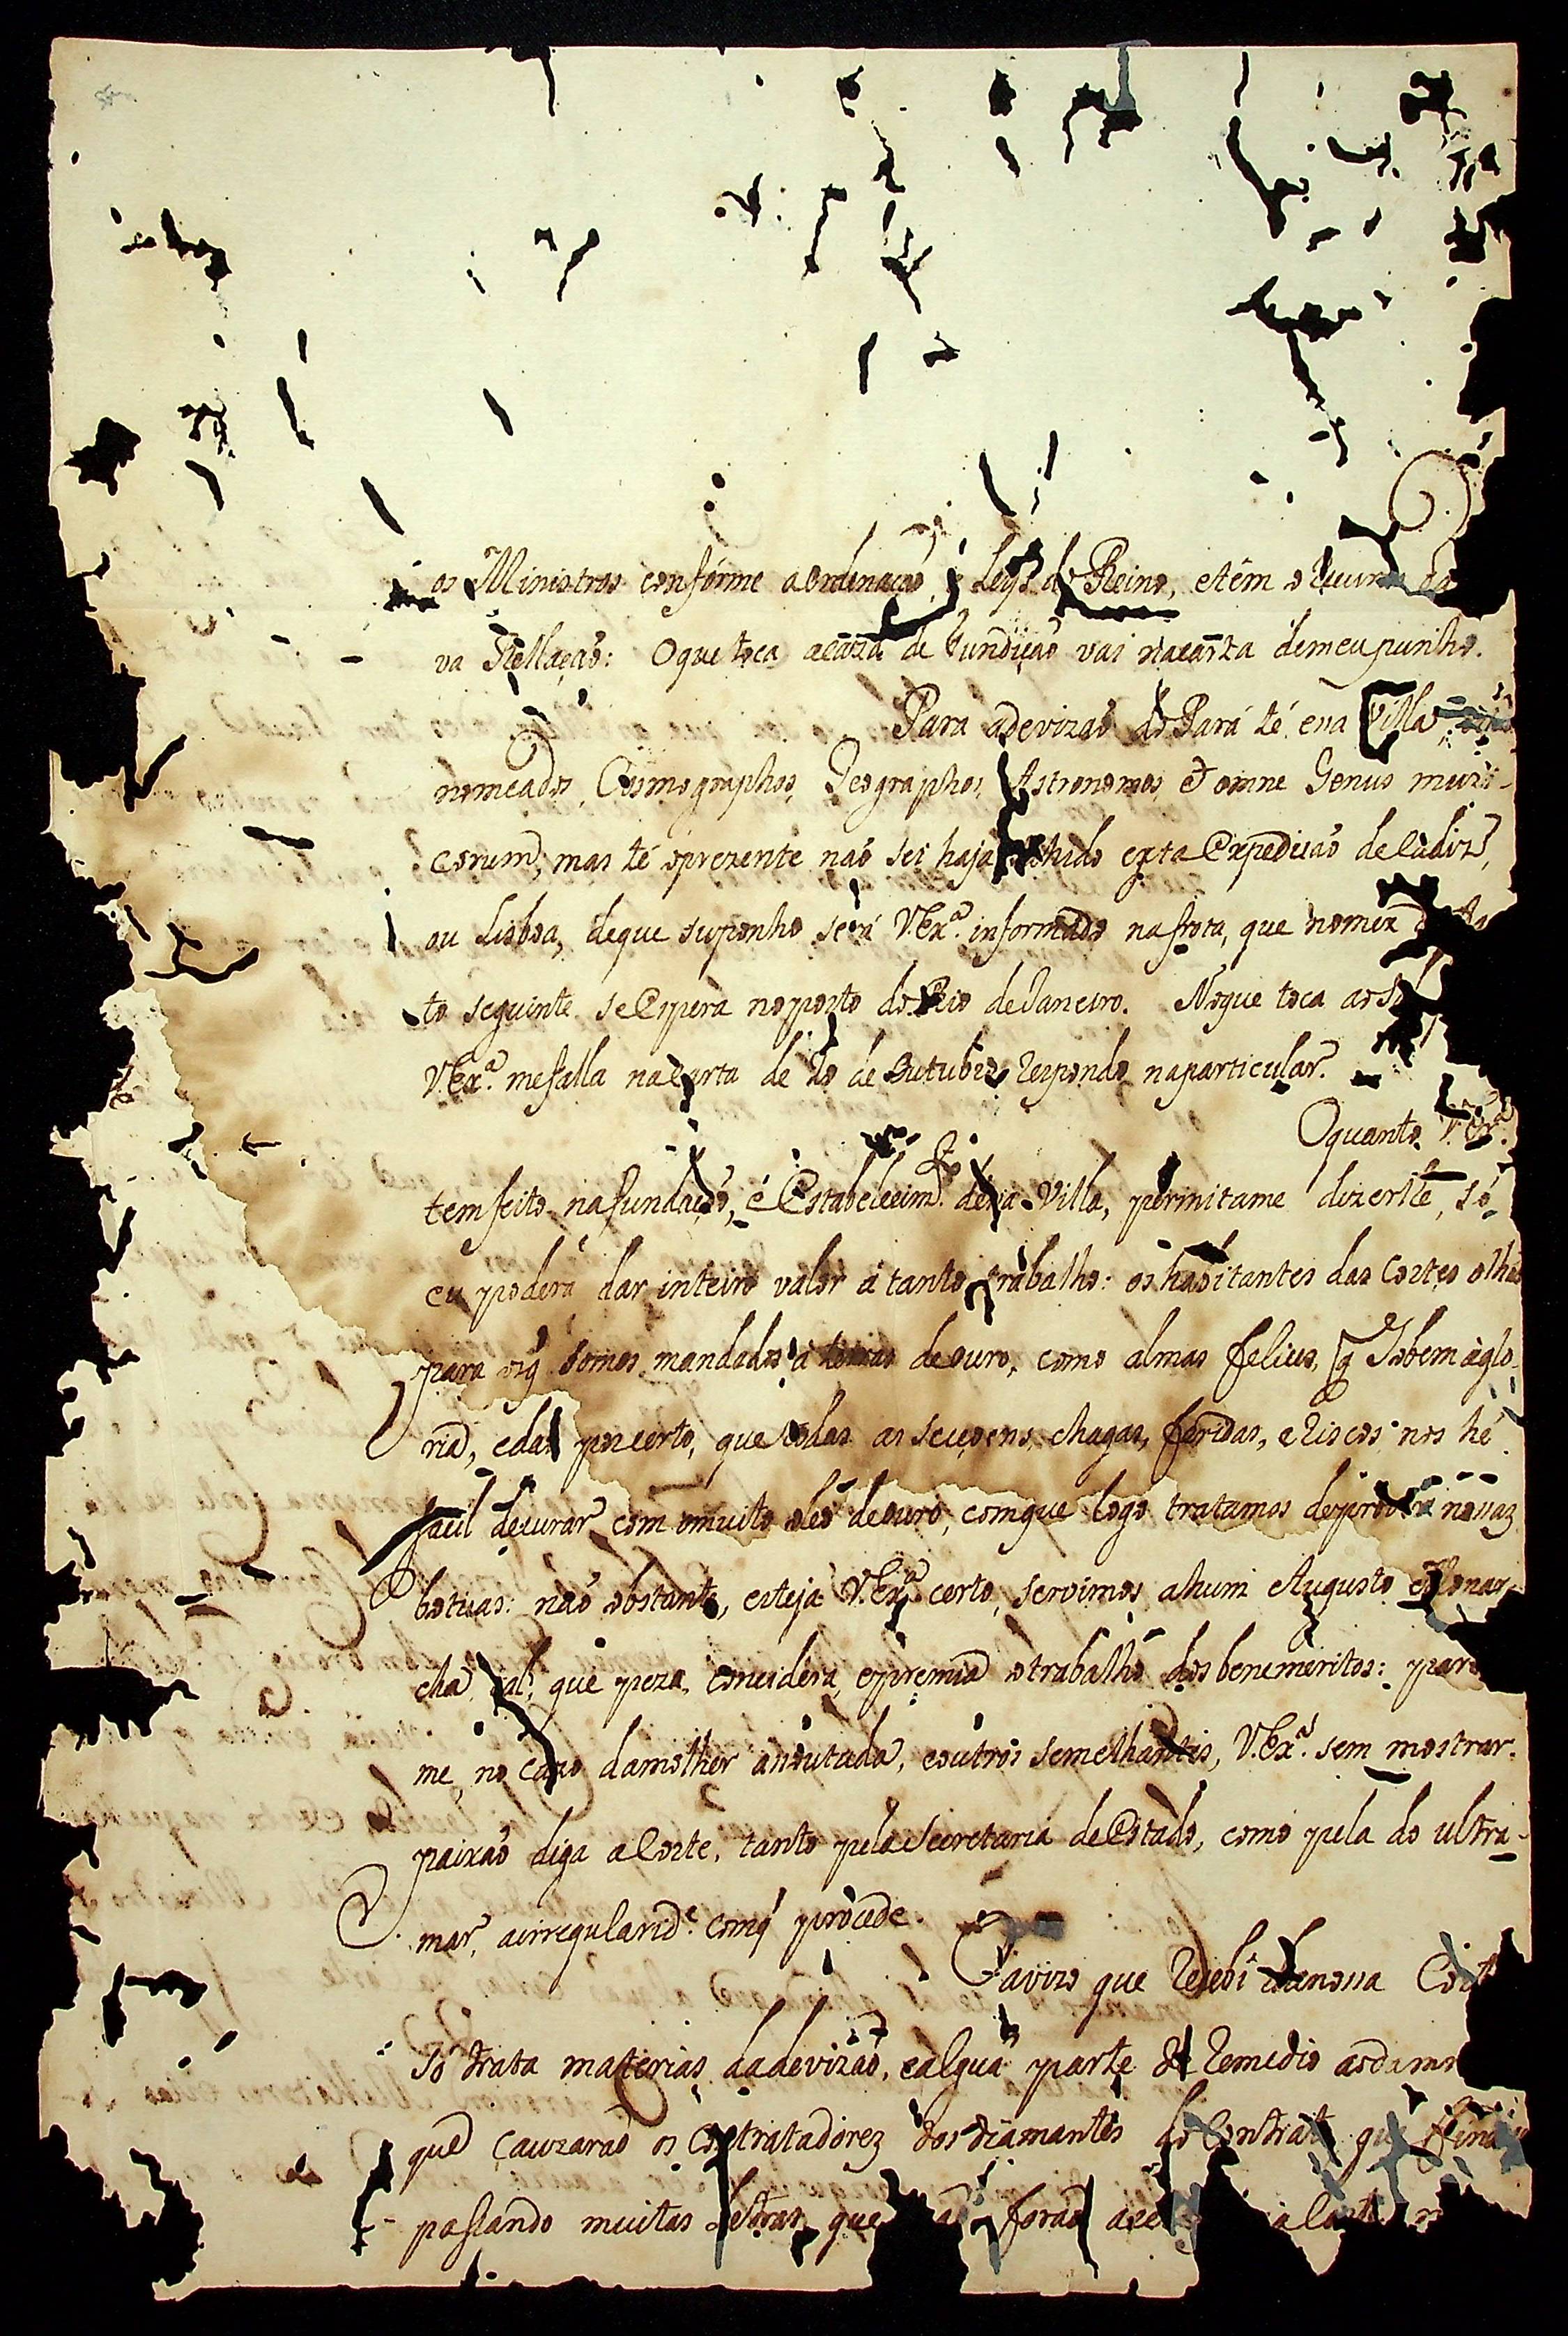 os Ministros confórme a Ordenaçaõ, e Leys do Reino, e têm o recurso da
va Rellaçaõ: O que toca a caza de fundiçaõ vai na carta de meu punho.
Para a devizaõ do Pará té e na Villa
nomeados, Cosmographos, Geographos, Astronomos, et omne Genus muzi-
corum, mas té o prezente naõ sei haja sahido esta Expediçaõ de Cadiz,
ou Lisboa, de que suponho será V. Exª. informado na frota, que no mez de
to seguinte se Espera no porto do Rio de Janeiro. No que toca ao
V. Exª. me falla na Carta de de Outubro, respondo na particular.
O quanto V. Exª.
tem feito na fundaçaõ, é Estabelecimᵗᵒ. desta Villa, permitame dizerlhe, só
eu poderá dar inteiro valor á tanto trabalho: os habitantes das Cortes olhaõ
para os q̃ somos mandados á terras de ouro, como almas felices, q̃ sobem á glo-
ria, e daõ por certo, que todas as chagas, feridas, e riscos nos hé
facil de curar com o muito oleo de ouro, com que logo tratamos de prover as nossas
boticas: naõ obstante, esteja V. Exª. certo, servimos a hum Augusto Monar-
cha tal, que peza, considera, e premia o trabalho dos benemeritos: pare
me, no cazo da molher asoutada, e outros semelhantes, V. Exª. sem mostrar
paixaõ diga a Corte, tanto pela Secretaria de Estado, como pela do ultra-
mar, a irregularidᵉ. com q̃ procede.
O avizo que recebi da nossa Corte
só trata materias da devizaõ, e algua parte de remedio ao damno
que cauzaraõ os Contratadorez dos diamantes do Contrato que
passando muitas Letras, que naõ foraõ